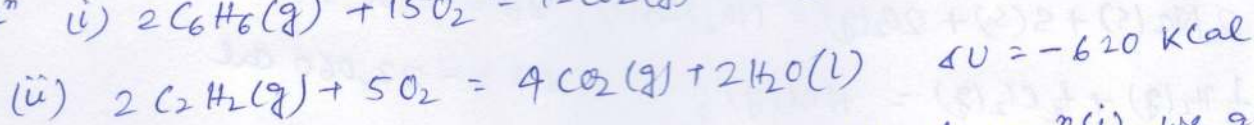 (i) 2C6H6(g) + 15O2 =
(ii) 2C2H2(g) + 5O2 = 4CO2(g) + 2H2O(l) ΔU = -620 Kcal
n(i)